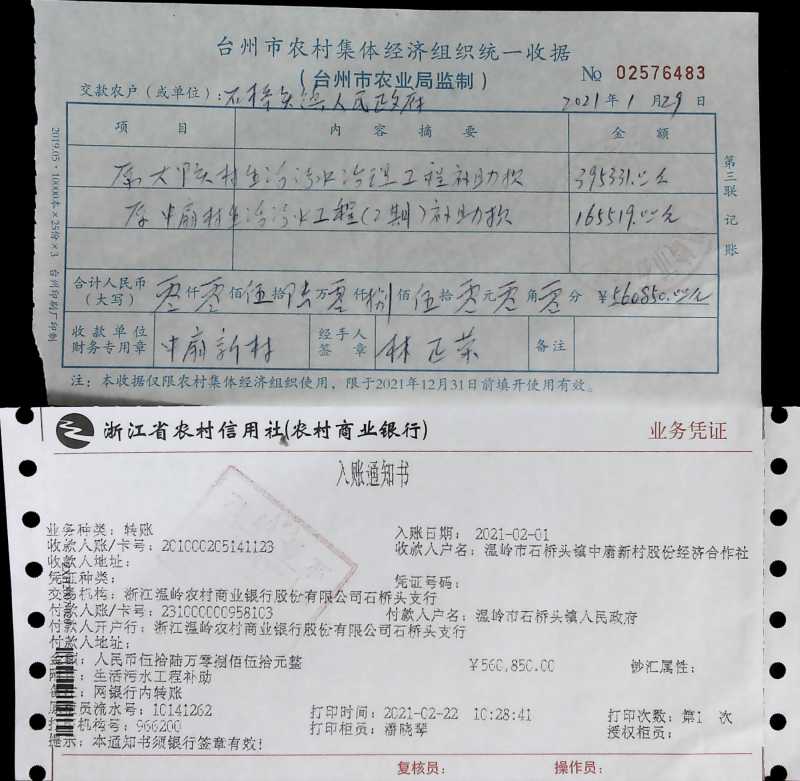 台州市农村集体经济组织统一收据
(台州市农业局监制)
No 02576483
交款农户(或单位):石桥头镇人民政府 2021年1月29日
项 目 内 容 摘 要 金 额
原大 村生活污水治理工程补助款 395331.00元
原中扇村生活污水工程(2期)补助款 165519.00元
合计人民币(大写) 零仟零佰伍拾陆万零仟捌佰伍拾零元零角零分 ¥560850.00元
收款单位财务专用章 中扇新村 经手人签章 林正荣 备注
注:本收据仅限农村集体经济组织使用,限于2021年12月31日前填开使用有效。
第三联 记账
2019.05·10000本×25份×3 台州印刷厂印制
浙江省农村信用社(农村商业银行) 业务凭证
入账通知书
业务种类:转账 入账日期: 2021-02-01
收款人账/卡号:201000205141123 收款人户名:温岭市石桥头镇中扇新村股份经济合作社
收款人地址:
凭证种类: 凭证号码:
交易机构:浙江温岭农村商业银行股份有限公司石桥头支行
付款人账/卡号:231000000958103 付款人户名:温岭市石桥头镇人民政府
付款人开户行:浙江温岭农村商业银行股份有限公司石桥头支行
付款人地址:
金额:人民币伍拾陆万零捌佰伍拾元整 ¥560,850.00 钞汇属性:
生活污水工程补助
网银行内转账
员流水号:10141262 打印时间:2021-02-22 10:28:41 打印次数:第1 次
打印机构号:966200 打印柜员:潘晓琴 授权柜员:
提示:本通知书须银行签章有效!
复核员: 操作员: